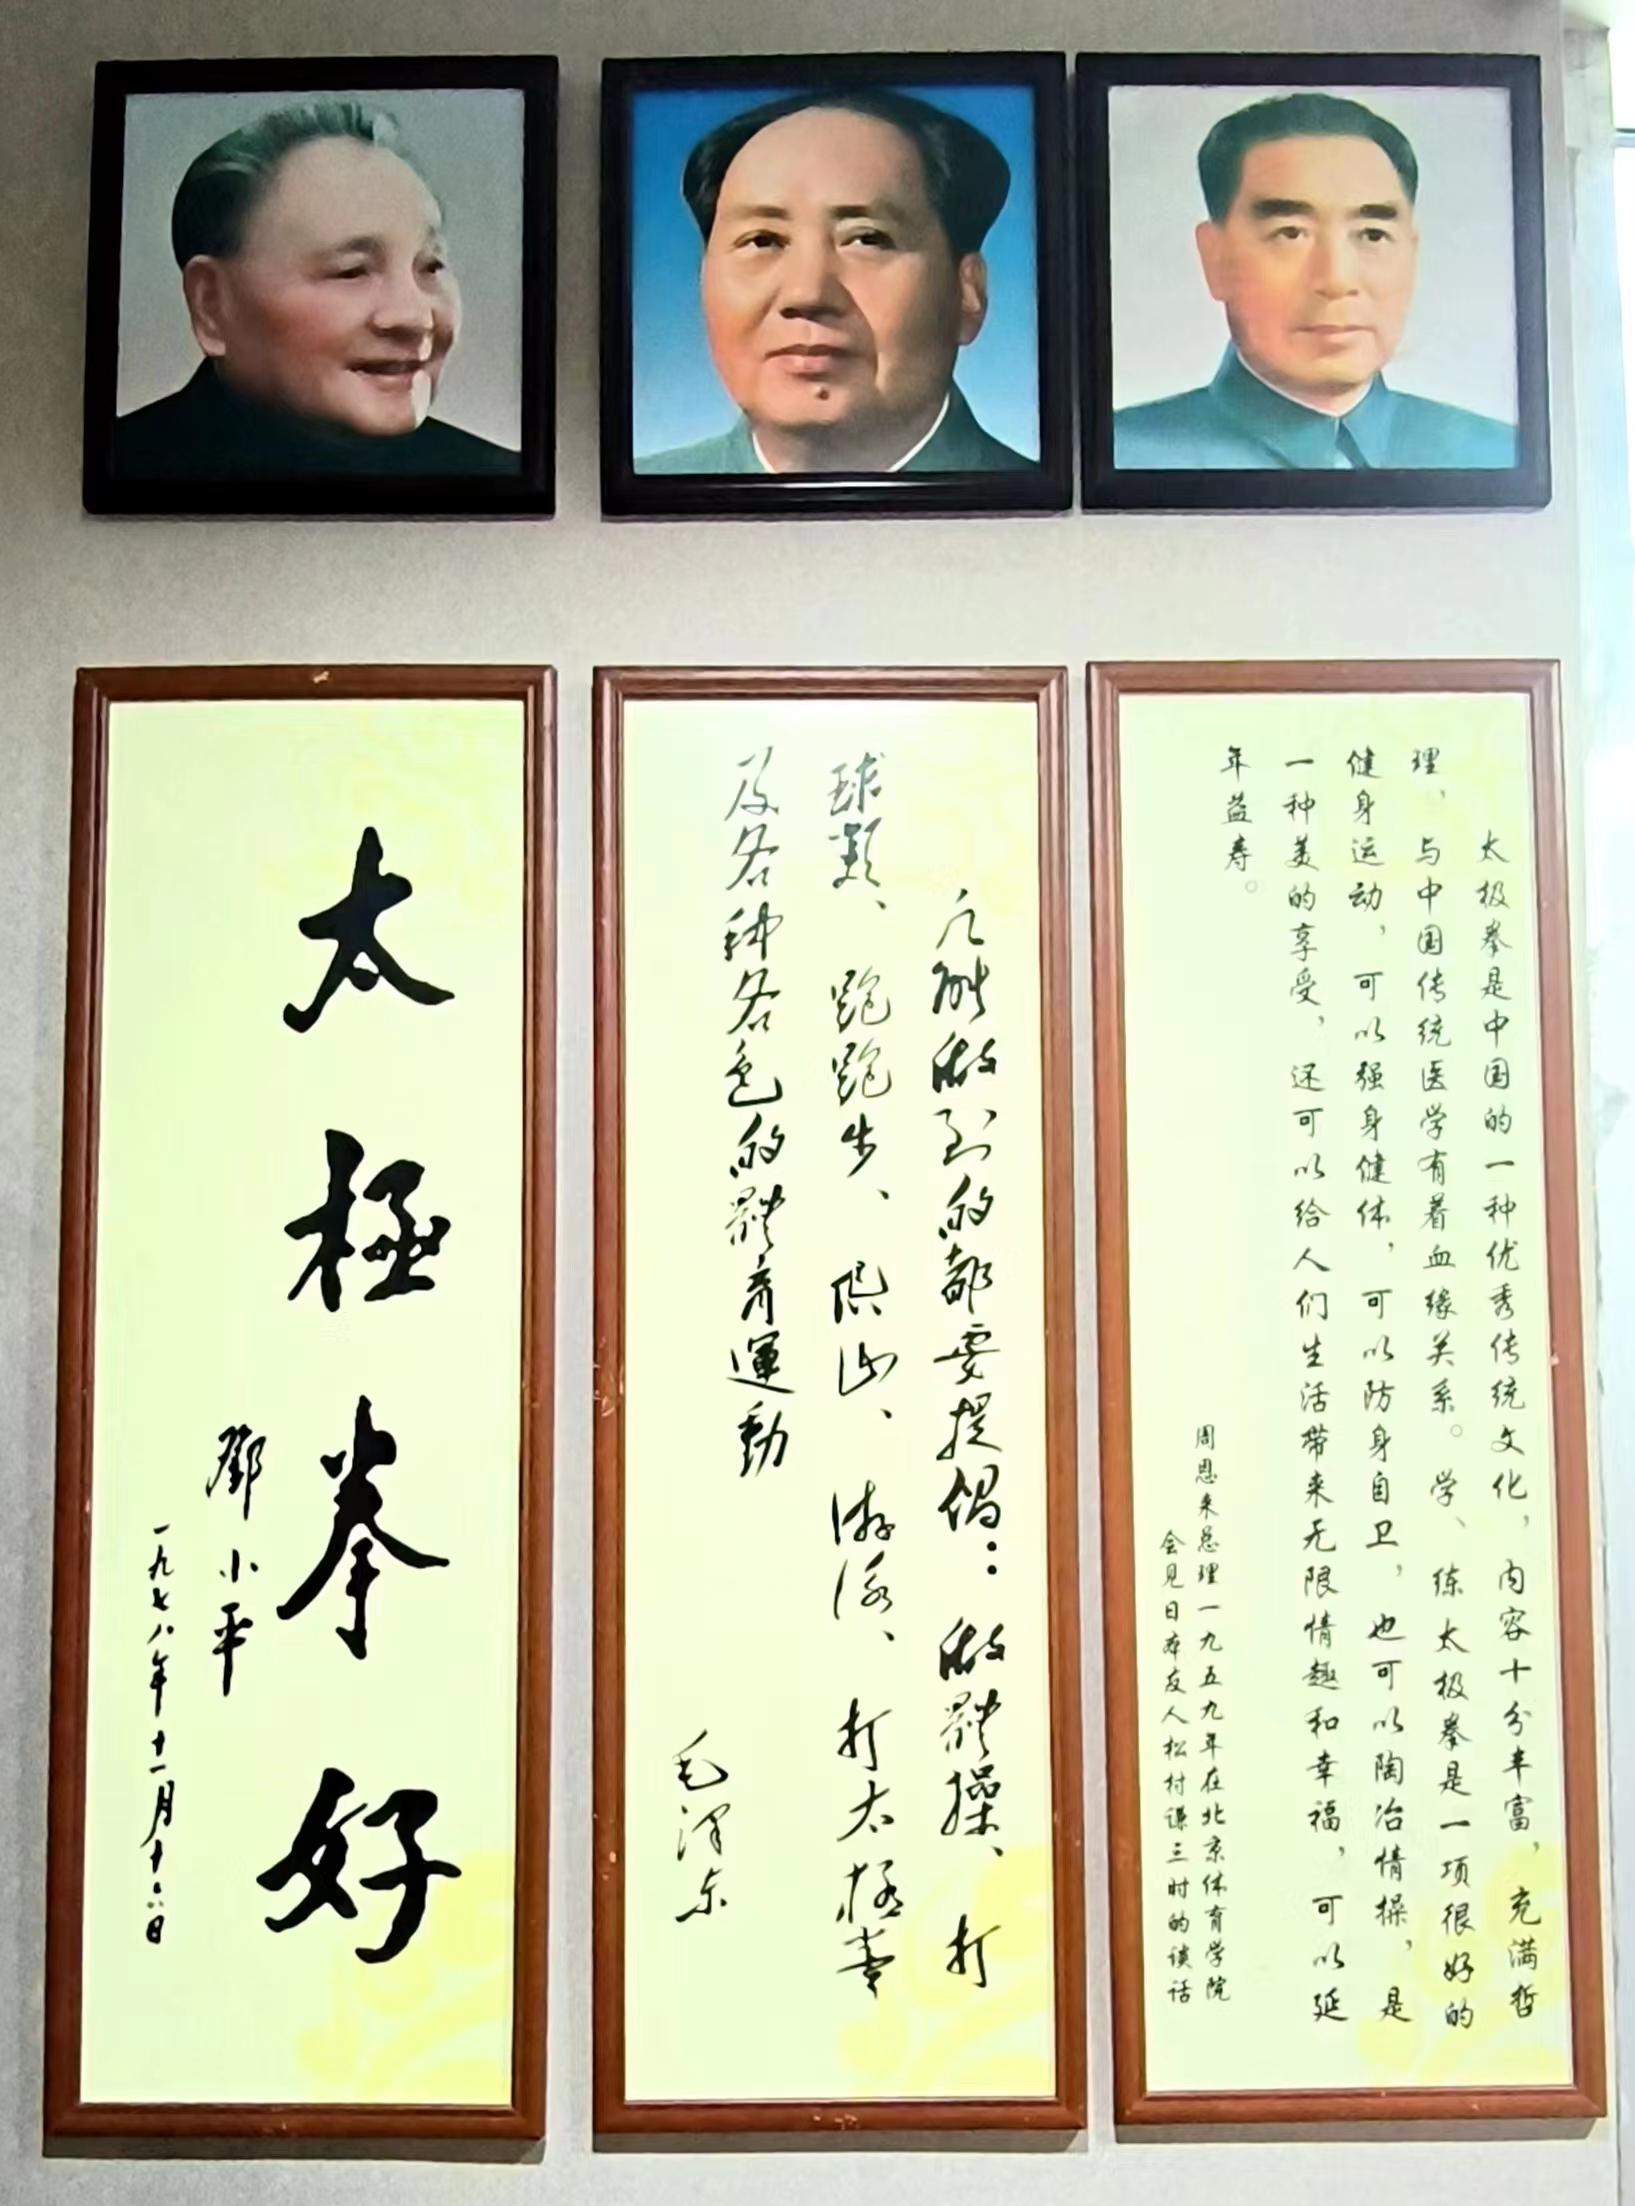 太極拳好
鄧小平
一九七八年十一月十六日
凡能做到的都要提倡：做體操、打
球類、跑跑步、爬山、游泳、打太極拳
及各种各色的體育運動
毛澤东
太极拳是中国的一种优秀传统文化，内容十分丰富，充满哲
理，与中国传统医学有着血缘关系。学、练太极拳是一项很好的
健身运动，可以强身健体，可以防身自卫，也可以陶冶情操，是
一种美的享受，还可以给人们生活带来无限情趣和幸福，可以延
年益寿。
周恩来总理一九五九年在北京体育学院
会见日本友人松村谦三时的谈话